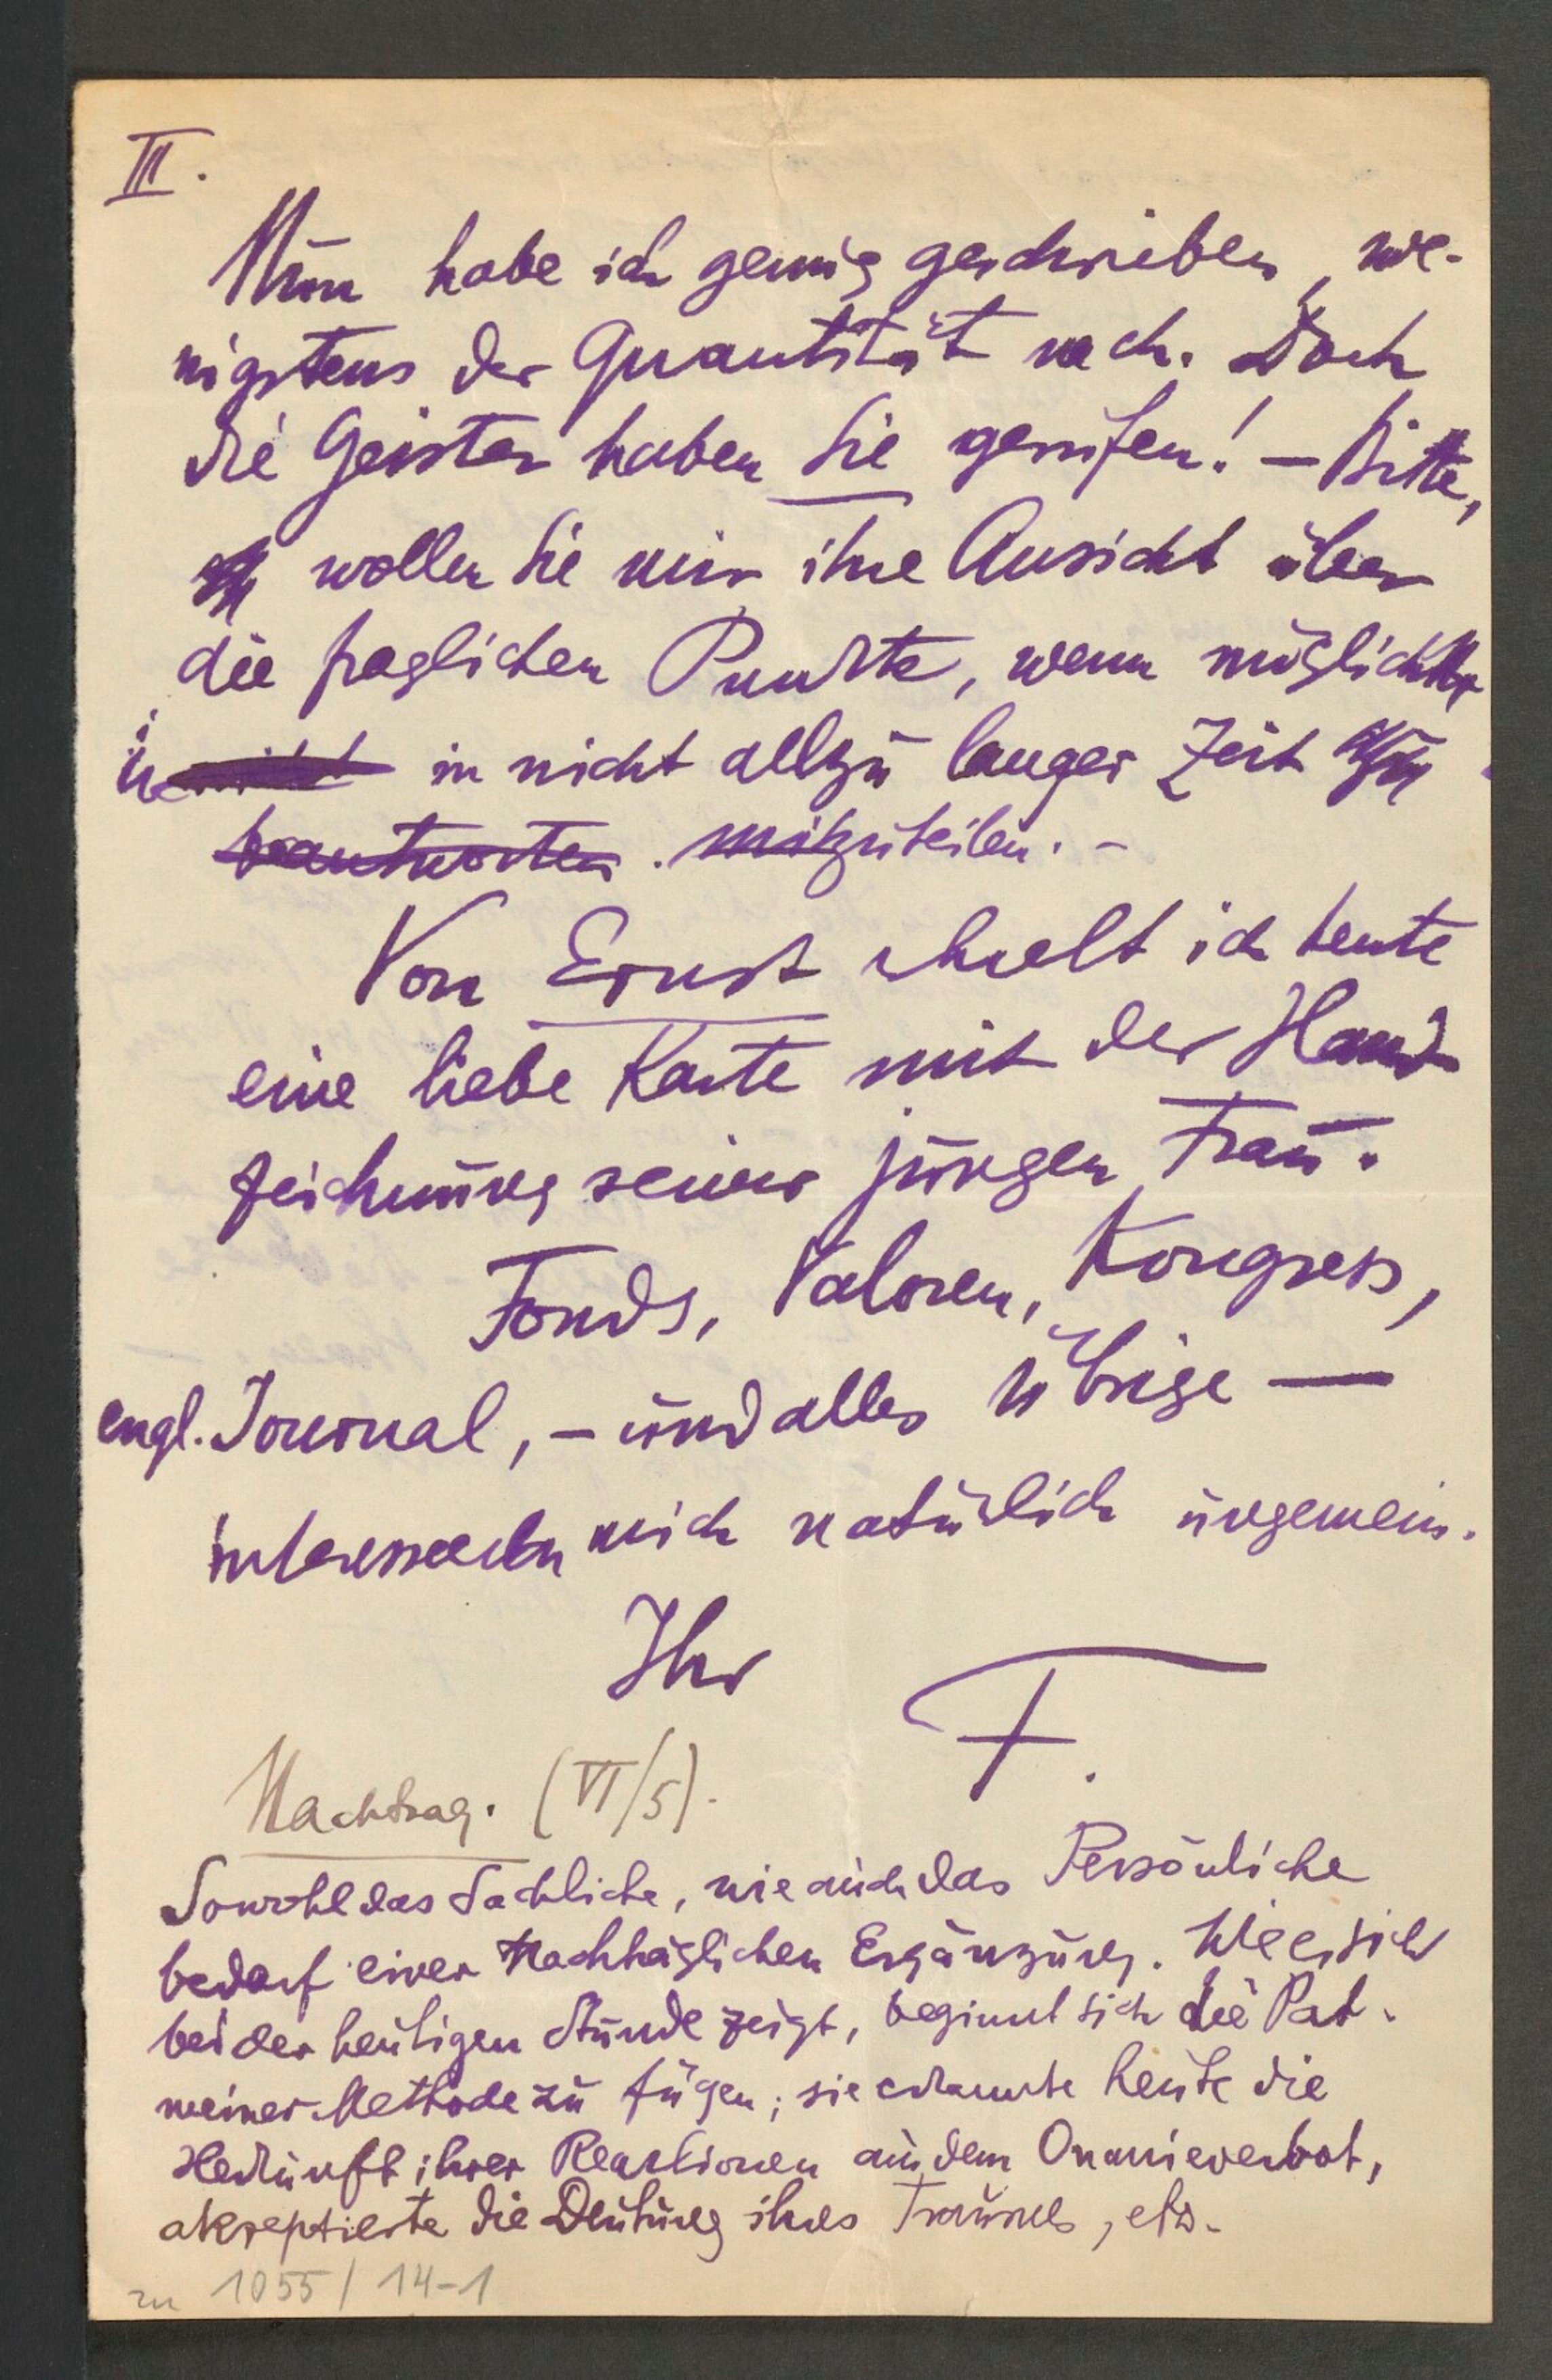 III.
Nun habe ich genug geschrieben, we-
nigstens der Quantität nach. Doch
die Geister haben Sie gerufen! – Bitte,
wollen Sie mir ihre Ansicht über
die fraglichen Punkte, wenn möglich
in nicht allzu langer Zeit
beantworten. mitzuteilen. –
Von Ernst erhielt ich heute
eine liebe Karte mit der Hand
zeichnung seiner jungen Frau.
Fonds, Valoren, Kongress,
engl. Journal, – und alles übrige —
interessieren mich natürlich ungemein.
Ihr F.
Nachtrag. (VI/5).
Sowohl das Sachliche, wie auch das Persönliche
bedarf einer Nachträglichen Ergänzung. Wie es sich
bei der heutigen Stunde zeigt, beginnt sich die Pat.
meiner Methode zu fügen; sie erkannte heute die
Herkunft ihrer Reactionen aus dem Onanieverbot,
akzeptierte die Deutung ihres Traumes, etz.
zu 1055/14-1